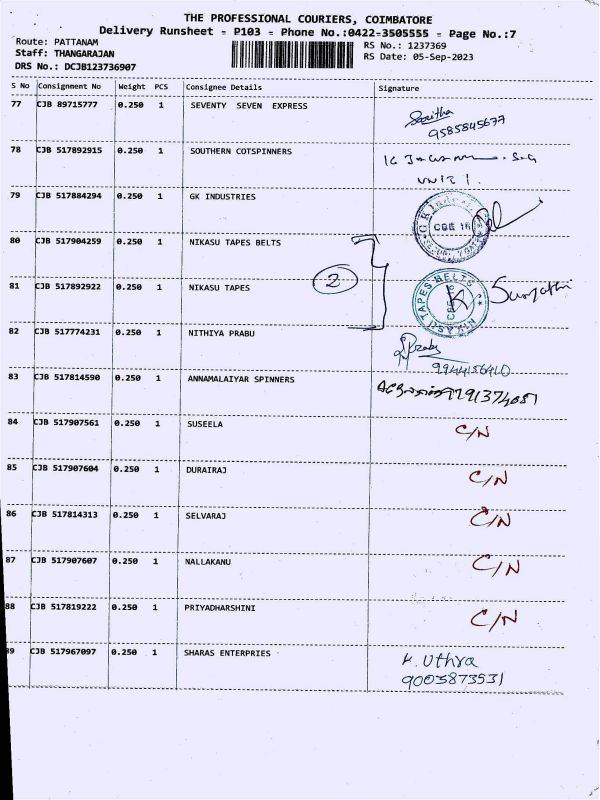 THE PROFESSIONAL COURIERS, COIMBATORE
Delivery Runsheet = P103 = Phone No.:0422-3505555 = Page No.:7
Route: PATTANAM
Staff: THANGARAJAN
DRS No.: DCJB123736907
RS No.: 1237369
RS Date: 05-Sep-2023
S No Consignment No Weight PCS Consignee Details Signature
77 CJB 89715777 0.250 1 SEVENTY SEVEN EXPRESS
78 CJB 517892915 0.250 1 SOUTHERN COTSPINNERS
UNIT 1.
79 CJB 517884294 0.250 1 GK INDUSTRIES
CBE 16
80 CJB 517904259 0.250 1 NIKASU TAPES BELTS
2
81 CJB 517892922 0.250 1 NIKASU TAPES
TAPES BELTS
82 CJB 517774231 0.250 1 NITHIYA PRABU
83 CJB 517814590 0.250 1 ANNAMALAIYAR SPINNERS
84 CJB 517907561 0.250 1 SUSEELA C/N
85 CJB 517907604 0.250 1 DURAIRAJ C/N
86 CJB 517814313 0.250 1 SELVARAJ C/N
87 CJB 517907607 0.250 1 NALLAKANU C/N
88 CJB 517819222 0.250 1 PRIYADHARSHINI C/N
89 CJB 517967097 0.250 1 SHARAS ENTERPRIES K. Uthra
9003873531